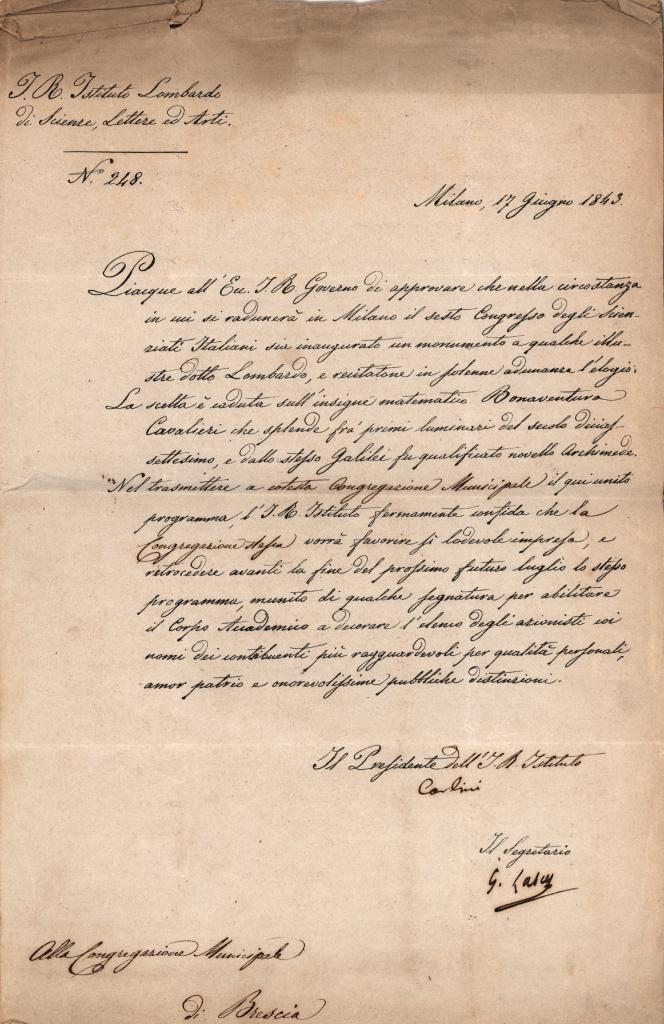 I. R. Istituto Lombardo
di Scienze, Lettere ed Arti.
N.º 248.
Milano, 17 Giugno 1843.
Piacque all' Ecc. I. R. Governo di approvare che nella circostanza
in cui si radunerà in Milano il sesto Congresso degli Scien-
ziati Italiani sia inaugurato un monumento a qualche illu-
stre dotto Lombardo, e recitatone in solenne adunanza l'elogio.
La scelta è caduta sull'insigne matematico Bonaventura
Cavalieri che splende fra' primi luminari del secolo dicias-
settesimo, e dallo stesso Galilei fu qualificato novello Archimede.
Nel trasmettere a cotesta Congregazione Municipale il qui unito
programma, l'I. R. Istituto fermamente confida che la
Congregazione stessa vorrà favorire sì lodevole impresa, e
retrocedere avanti la fine del prossimo futuro luglio lo stesso
programma, munito di qualche segnatura per abilitare
il Corpo Accademico a decorare l'elenco degli azionisti coi
nomi dei contribuenti più ragguardevoli per qualità personali,
amor patrio e onorevolissime pubbliche distinzioni.
Il Presidente dell'I. R. Istituto
Carlini
Il Segretario
G.
Alla Congregazione Municipale
di Brescia